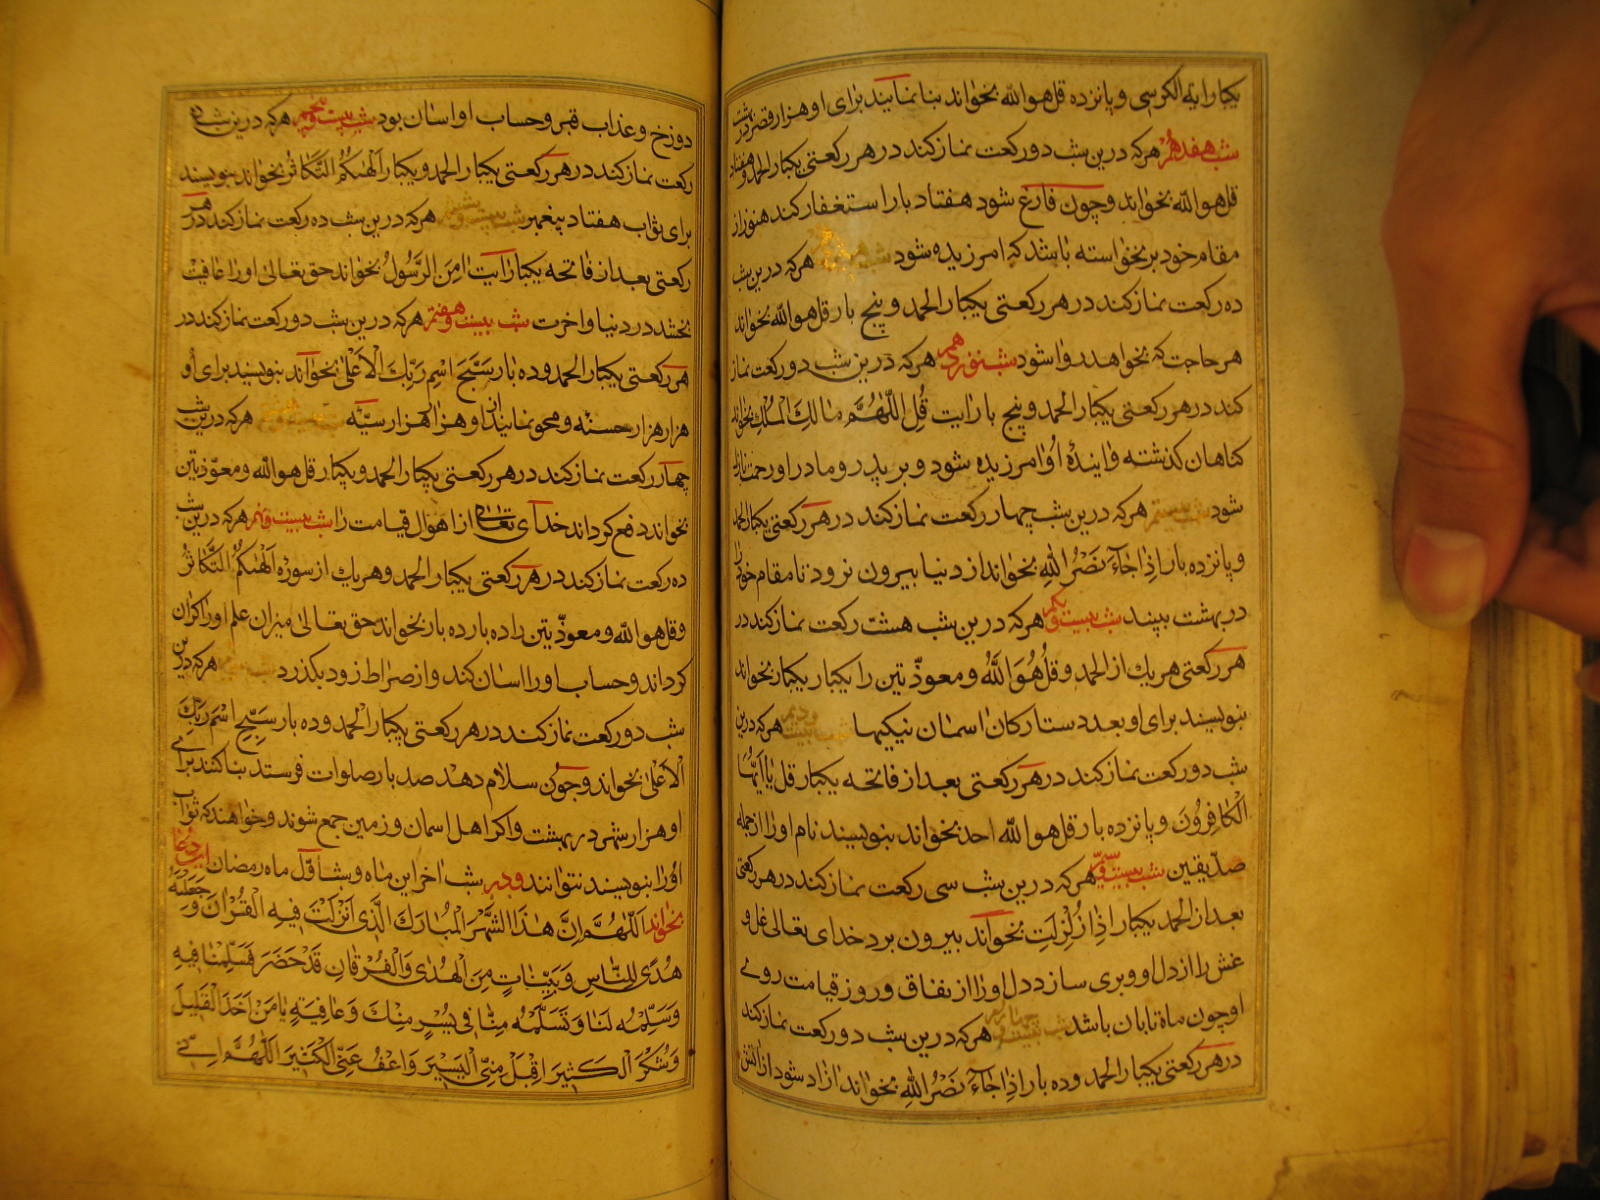 یکبار ایة الکرسی و پانزده قل هو الله بخواند بنا نمایند برای او هزار قصر در بهشت
شب هفدهم هرکه درین شب دو رکعت نماز کند در هر رکعتی یکبار الحمد و هفتاد
قل هو الله بخواند و چون فارغ شود هفتاد بار استغفار کند هنوز از
مقام خود برنخواسته باشد که امرزیده شود شب هرکه درین شب
ده رکعت نماز کند در هر رکعتی یکبار الحمد و پنج بار قل هو الله بخواند
هر حاجت که بخواهد روا شود شب نوزدهم هرکه درین شب دو رکعت نماز
کند در هر رکعتی یکبار الحمد و پنج بار ایت قُلِ اللّٰهُمَّ مَالِكَ الْمُلْكِ بخواند
کناهان کذشته و ایندهٔ او امرزیده شود و بر پدر و مادر او رحمت
شود شب بیستم هرکه درین شب چهار رکعت نماز کند در هر رکعتی یکبار الحمد
و پانزده بار اِذَا جَاءَ نَصْرُ اللهِ بخواند از دنیا بیرون نرود تا مقام خود را
در بهشت بیند شب بیست و یکم هرکه درین شب هشت رکعت نماز کند در
هر رکعتی هریك از الحمد و قُلْ هُوَ اللّٰهُ و معوذّتین را یکبار یکبار بخواند
بنویسند برای او بعدد ستارکان اسمان نیکیها شب بیست و دویم هرکه درین
شب دو رکعت نماز کند در هر رکعتی بعد از فاتحه یکبار قل یَا اَیُّهَا
الْكَافِرُونَ و پانزده بار قل هو الله احد بخواند بنویسند نام او را از جمله
صدّیقین شب بیست و سیّم هرکه درین شب سی رکعت نماز کند در هر رکعتی
بعد از الحمد یکبار اِذَا زُلْزِلَتِ بخواند بیرون برد خدای تعالی غل و
غش را از دل او و بری سازد دل او را از نفاق و روز قیامت روی
او چون ماه تابان باشد شب بیست و چهارم هرکه درین شب دو رکعت نماز کند
در هر رکعتی یکبار الحمد و ده بار اِذَا جَاءَ نَصْرُ اللهِ بخواند ازاد شود از اتش
دوزخ و عذاب قبر و حساب او اسان بود شب بیست و پنجم هرکه درین شب ده
رکعت نماز کند در هر رکعتی یکبار الحمد و یکبار اَلْهٰىكُمُ التَّكَاثُرُ بخواند بنویسند
برای ثواب هفتاد پیغمبر شب بیست و ششم هرکه درین شب ده رکعت نماز کند در هر
رکعتی بعد از فاتحه یکبار ایت اٰمَنَ الرَّسُولُ بخواند حق تعالی او را عافیت
بخشد در دنیا و اخرت شب بیست و هفتم هرکه درین شب دو رکعت نماز کند در
هر رکعتی یکبار الحمد و ده بار سَبِّحِ اسْمَ رَبِّكَ الْاَعْلٰی بخواند بنویسند برای او
هزار هزار حسنه و محو نمایند از او هزار هزار سیّئه هرکه درین شب
چهار رکعت نماز کند در هر رکعتی یکبار الحمد و یکبار قل هو الله و معوّذتین
بخواند دفع کرداند خدای تعالی از اهوال قیامت را شب بیست و نهم هرکه درین شب
ده رکعت نماز کند در هر رکعتی یکبار الحمد و هریك از سوره اَلْهٰىكُمُ التَّكَاثُرُ
و قل هو الله و معوذّتین را ده بار ده بار بخواند حق تعالی میزان عمل او را کران
کرداند و حساب او را اسان کند و از صراط زود بکذرد هرکه درین
شب دو رکعت نماز کند در هر رکعتی یکبار الحمد و ده بار سَبِّحِ اسْمَ رَبِّكَ
الْاَعْلٰی بخواند و چون سلام دهد صد بار صلوات فرستد بنا کنند برای
او هزار شهر در بهشت و اکر اهل اسمان و زمین جمع شوند و خواهند که ثواب
او را بنویسند نتوانند و در شب اخر این ماه و شب اوّل ماه رمضان این دعا
بخواند اَللّٰهُمَّ اِنَّ هٰذَا الشَّهْرَ الْمُبَارَكَ الَّذِی اُنْزِلَتْ فِیهِ الْقُرْاٰنُ وَجَعَلْتَهُ
هُدًی لِلنَّاسِ وَبَیِّنَاتٍ مِنَ الْهُدٰی وَالْفُرْقَانِ قَدْ حَضَرَ فَسَلِّمْنَا فِیهِ
وَسَلِّمْهُ لَنَا وَتَسَلَّمْهُ مِنَّا فِی یُسْرٍ مِنْكَ وَعَافِیَةٍ یَا مَنْ اَخَذَ الْقَلِیلَ
وَشَكَرَ الْكَثِیرَ اِقْبَلْ مِنِّی الْیَسِیرَ وَاعْفُ عَنِّی الْكَثِیرَ اَللّٰهُمَّ اِنِّی